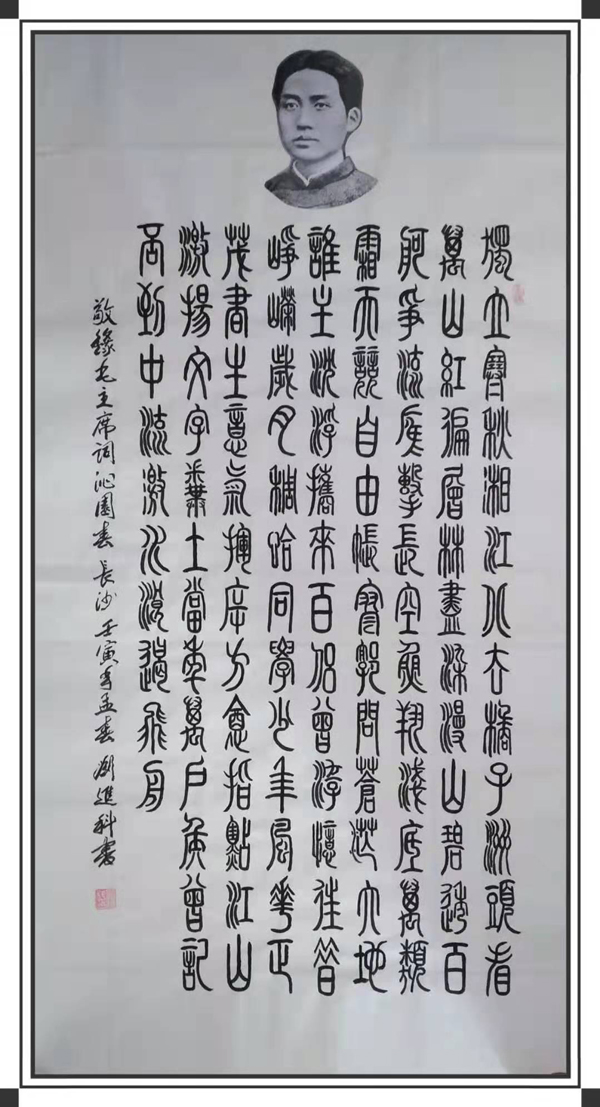 獨立寒秋湘江北去橘子洲頭看
萬山紅徧層林盡染漫山碧透百
舸爭流鷹擊長空魚翔淺底萬類
霜天競自由悵寥郭問蒼茫大地
誰主沈浮攜來百侶曾游憶往昔
崢嶸歲月稠恰同學少年風華正
茂書生意气揮斥方遒指點江山
激揚文字糞土當年萬戶侯曾記
否到中流激水浪遏飛舟
敬錄毛主席詞沁園春 長沙 壬寅年孟春 劉進科書